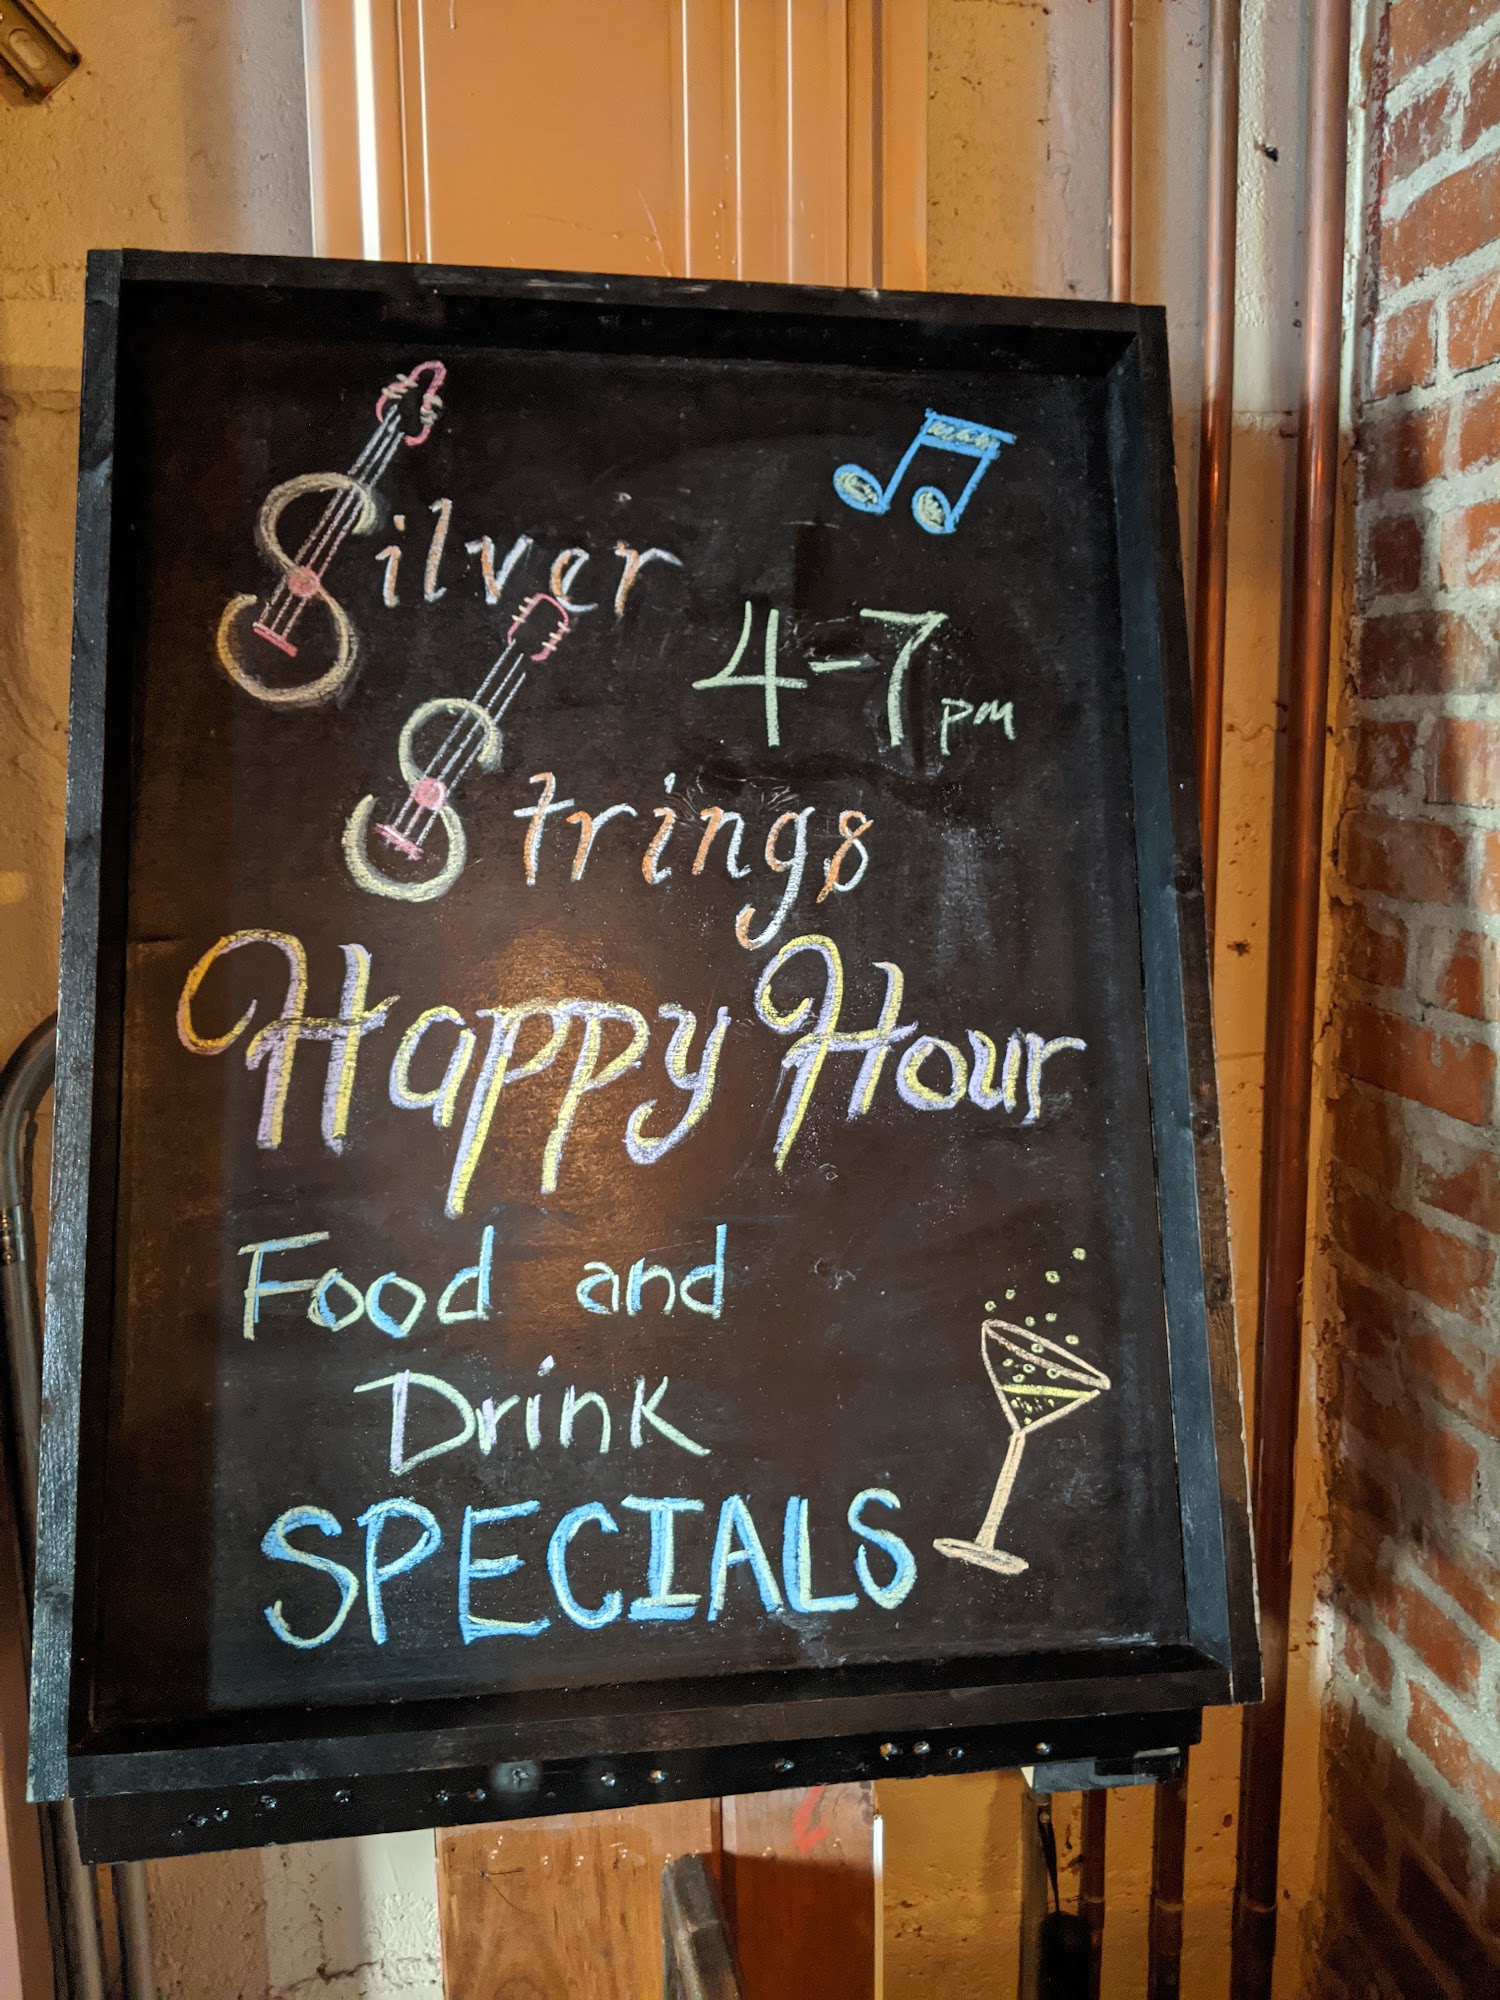 Silver
4-7pm
Strings
Happy Hour
Food and
Drink
SPECIALS